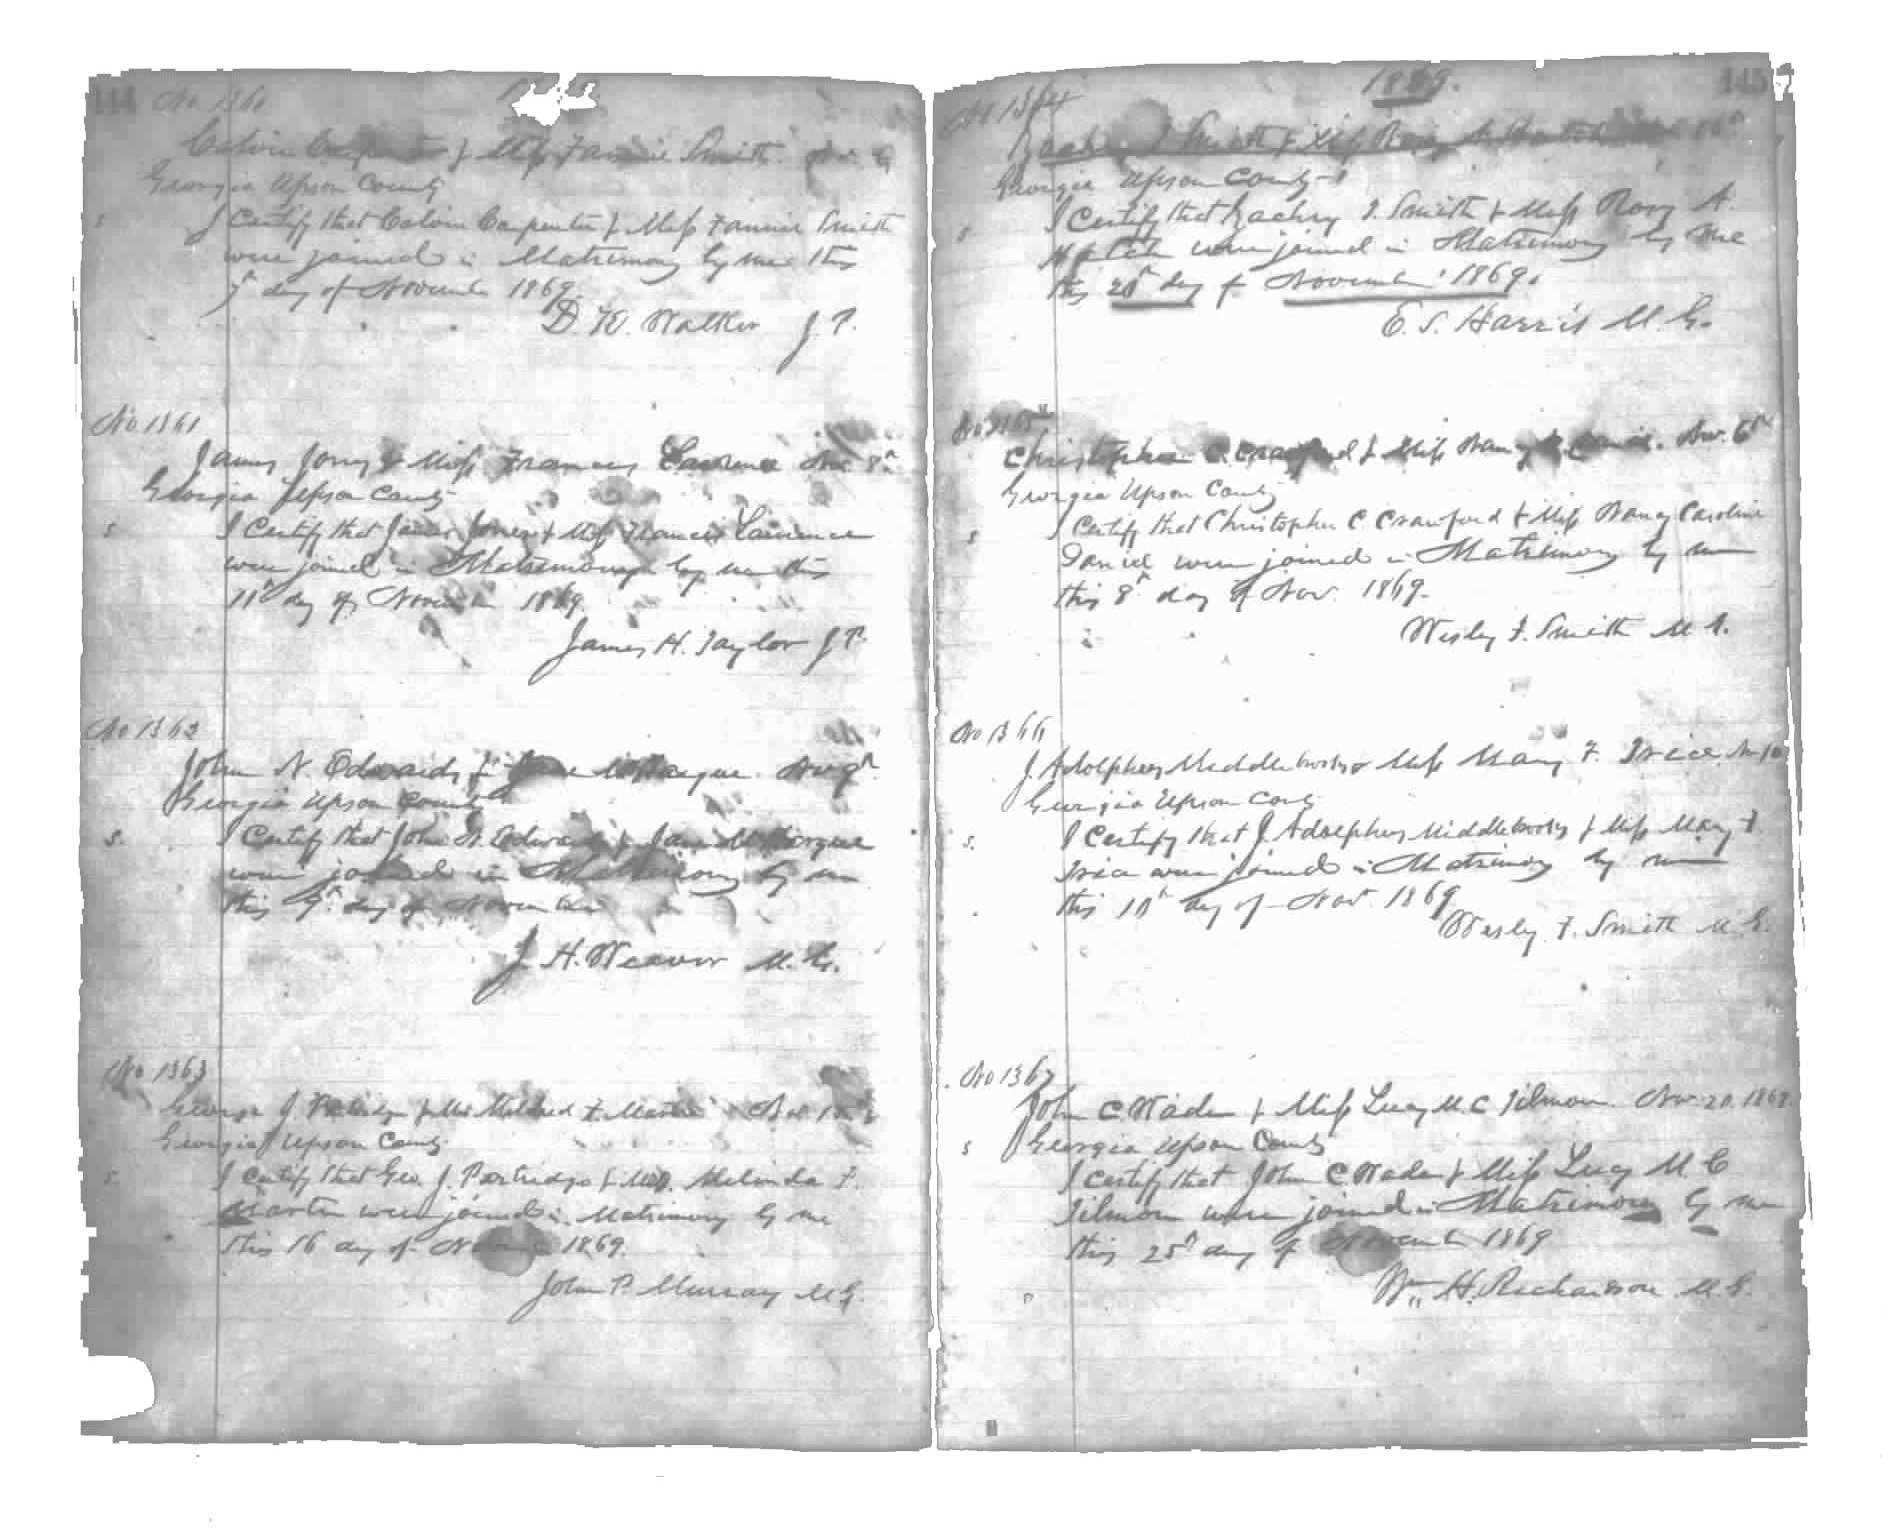 144 No 1360
Calvin Carpenter & Miss Fannie Smith. Nov. 6
Georgia Upson County
S I Certify that Calvin Carpenter & Miss Fannie Smith
were joined in Matrimony by me this
7th day of November 1869
D. W. Walker J. P.
No 1361
James Jones & Miss Frances Lawrence Nov 8th
Georgia Upson County
S I Certify that James Jones & Miss Frances Lawrence
were joined in Matrimony by me this
11th day of November 1869
James H. Taylor J P.
No 1362
John N. Edwards & Nov 9th
Georgia Upson County
S. I Certify that John N. Edwards &
were joined in Matrimony by me
this 9th day of November
J. H. Weaver M. G.
No 1363
George J. Partridge & Miss Mildred F. Martin Nov
Georgia Upson County
S. I Certify that Geo. J. Partridge & Miss Melinda F.
Martin were joined in Matrimony by me
this 16 day of November 1869.
John P. Murray M G.
1869. 145
No 1364
Zachry Smith & Miss Roxy A. Hatch
Georgia Upson County
S I Certify that Zachry T. Smith & Miss Roxy A.
Hatch were joined in Matrimony by me
this day of November 1869.
E. S. Harris M. G.
No 1365
Christopher C. Crawford & Miss Nancy C. Nov. 6th
Georgia Upson County
S I Certify that Christopher C Crawford & Miss Nancy Caroline
Daniel were joined in Matrimony by me
this 8th day of Nov. 1869.
Wesley F. Smith M G.
No 1366
J. Adolphus Middlebrooks & Miss Mary F. Trice Nov 10
Georgia Upson County
S. I Certify that J. Adolphus Middlebrooks & Miss Mary F
Trice were joined in Matrimony by me
this 10th day of Nov. 1869
Wesley F. Smith M. G.
No 1367
John C. Waden & Miss Lucy M. C Tilmon. Nov 20. 1869
Georgia Upson County
S I Certify that John C Waden & Miss Lucy M. C
Tilmon were joined in Matrimony by me
this 25th day of November 1869
Wm H. Richardson M. G.